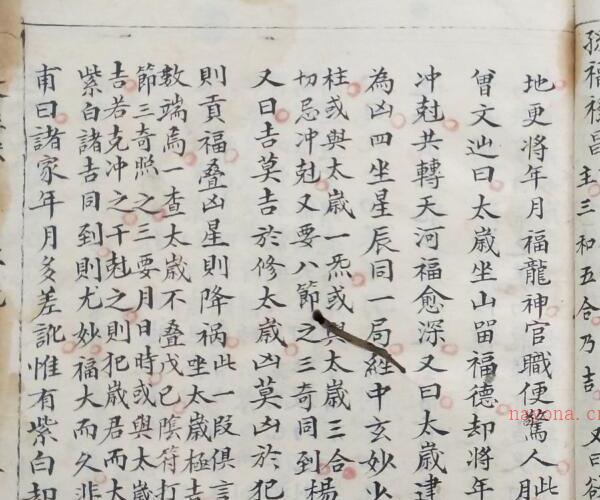 孫福祿昌主三和五合乃吉又曰
地更將年月福龍神官職便驚人此
曾文辿曰太歲坐山留福德却將年月
冲尅共轉天河福愈深又曰太歲建
為凶四坐星辰同一局經中玄妙少
柱或與太歲一炁或與太歲三合
切忌冲尅又要八節之三奇同到楊
又曰吉莫吉於修太歲凶莫凶於犯
則貢福叠凶星則降祸此一段俱言
坐太歲極吉
数端焉一查太歲不叠戊己隂符打
節三奇照之三要月日時或與太歲
吉若克冲之干尅之則犯歲君而大
紫白諸吉同到則尤妙福大而久非
甫曰諸家年月多差訛惟有紫白却
nayona.cn